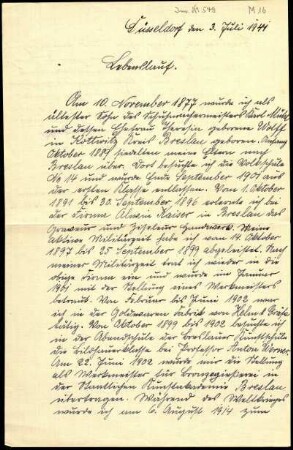 M 16
Düsseldorf den 3. Juli 1941
Lebenslauf.
Am 10. November 1877 wurde ich als
ältester Sohn des Schuhmachermeisters Karl
und dessen Ehefrau Theresia geborene Wolff
in Kottwitz Kreis Breslau geboren. Anfang
Oktober 1887 siedelten meine Eltern nach
Breslau über. Dort besuchte ich die Volksschule
No 14 und wurde Ende September aus
der ersten Klasse entlassen. Vom 1. Oktober
1891 bis 30. September 1896 erlernte ich bei
der Firma Kaiser in Breslau das
Graveur und Ziseleur Handwerk. Meine
aktive Militärzeit habe ich vom 14. Oktober
1897 bis 25 September 1899 abgeleistet. Nach
meiner Militärzeit trat ich wieder in die
obige Firma ein und wurde im Januar
1901 mit der Stellung eines Werkmeisters
betraut. Von Februar bis Juni 1902 war
ich in der Goldwaren Fabrik von
tätig. Von Oktober 1899 bis 1902 besuchte ich
in der Abendschule der Breslauer Kunstschule
die Bildhauerklasse bei Professor
Am 23. Juni 1902 wurde mir die Stellung
als Werkmeister für Bronzegießerei in
der Staatlichen Kunstakademie Breslau
übertragen. Während des Weltkrieges
wurde ich am 6. August 1914 zum